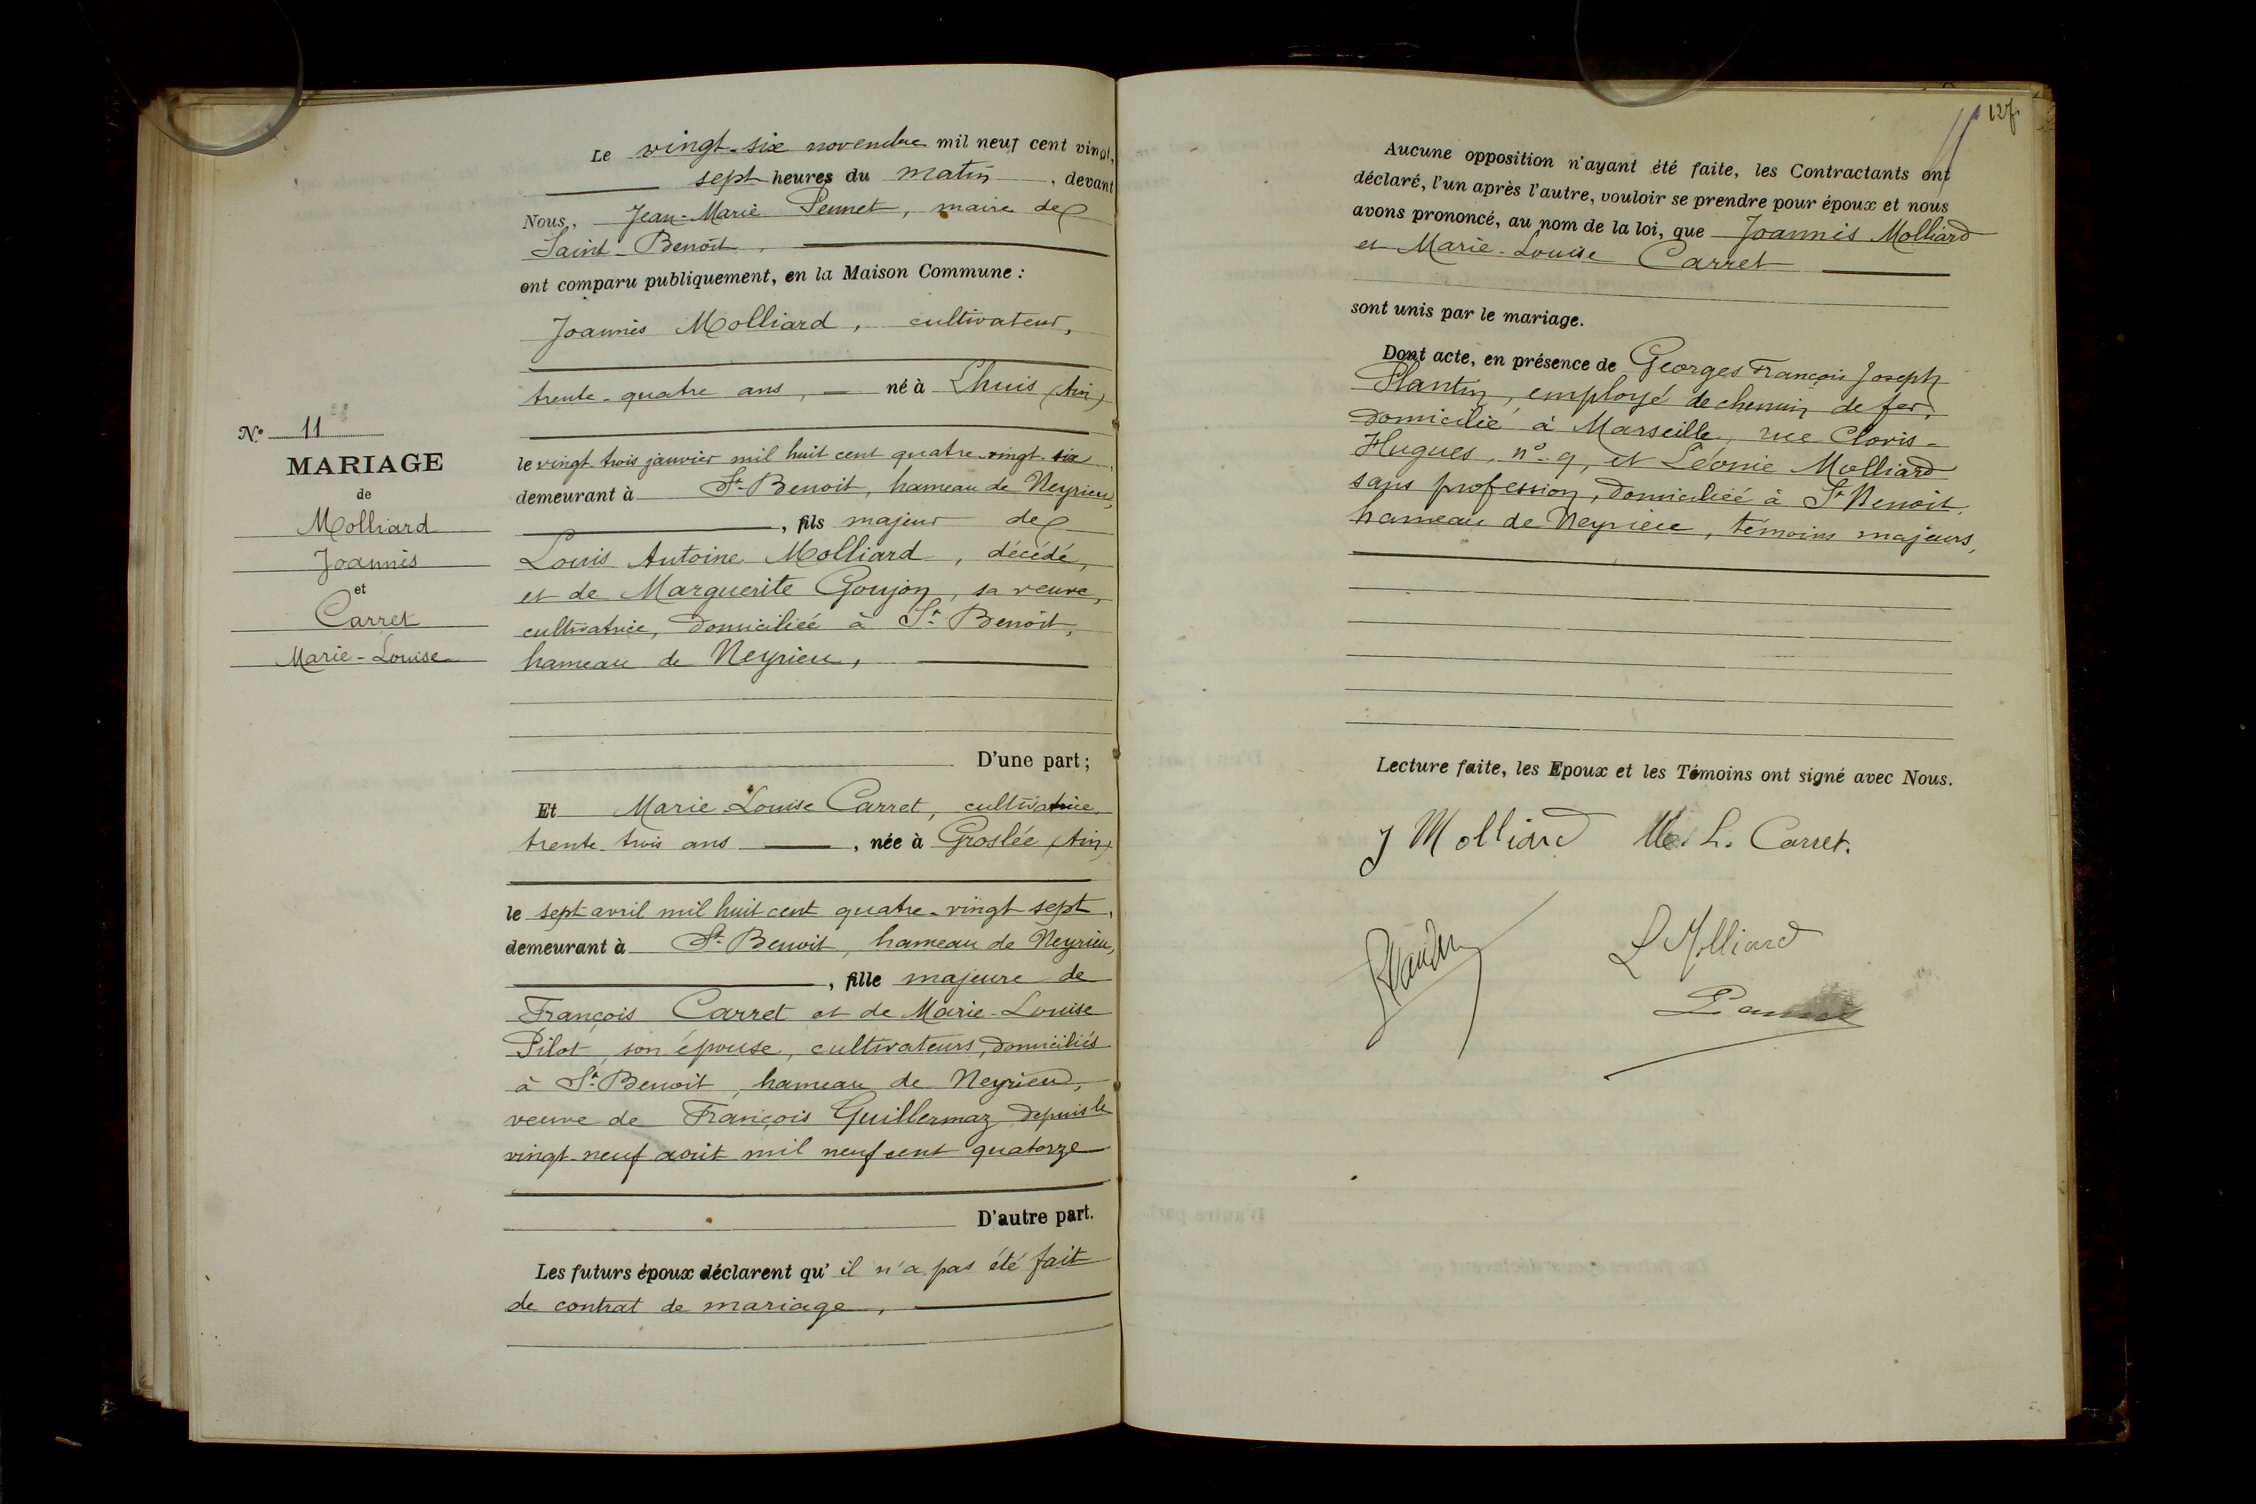 N.º 11
MARIAGE
de
Molliard
Joannès
et
Carret
Marie-Louise
Le vingt-six novembre mil neuf cent vingt,
sept heures du matin, devant
Nous, Jean-Marie Pennet, maire de
Saint-Benoît,
ont comparu publiquement, en la Maison Commune :
Joannès Molliard, cultivateur,
trente-quatre ans, né à Lhuis (Ain)
le vingt trois janvier mil huit cent quatre-vingt-six,
demeurant à St-Benoit, hameau de Neyrieu,
, fils majeur de
Louis Antoine Molliard, décédé,
et de Marguerite Goujon, sa veuve,
cultivatrice, domiciliée à St-Benoît,
hameau de Neyrieu,
D'une part ;
Et Marie-Louise Carret, cultivatrice
trente-trois ans, née à Groslée (Ain)
le sept avril mil huit cent quatre-vingt sept,
demeurant à St-Benoit, hameau de Neyrieu,
, fille majeure de
François Carret et de Marie-Louise
Pilot, son épouse, cultivateurs, domiciliés
à St-Benoit, hameau de Neyrieu,
veuve de François Guillermaz depuis le
vingt-neuf août mil neuf cent quatorze
D'autre part.
Les futurs époux déclarent qu'il n'a pas été fait
de contrat de mariage,
127
Aucune opposition n'ayant été faite, les Contractants ont
déclaré, l'un après l'autre, vouloir se prendre pour époux et nous
avons prononcé, au nom de la loi, que Joannès Molliard
et Marie-Louise Carret
sont unis par le mariage.
Dont acte, en présence de Georges François Joseph
Plantin, employé de chemin de fer,
domicilié à Marseille, rue Clovis-
Hugues, nº 9, et Léonie Molliard
sans profession, domiciliée à St Benoit,
hameau de Neyrieu, témoins majeurs,
Lecture faite, les Epoux et les Témoins ont signé avec Nous.
J Molliard M. L. Carret.
Plantin
L Molliard
Pennet